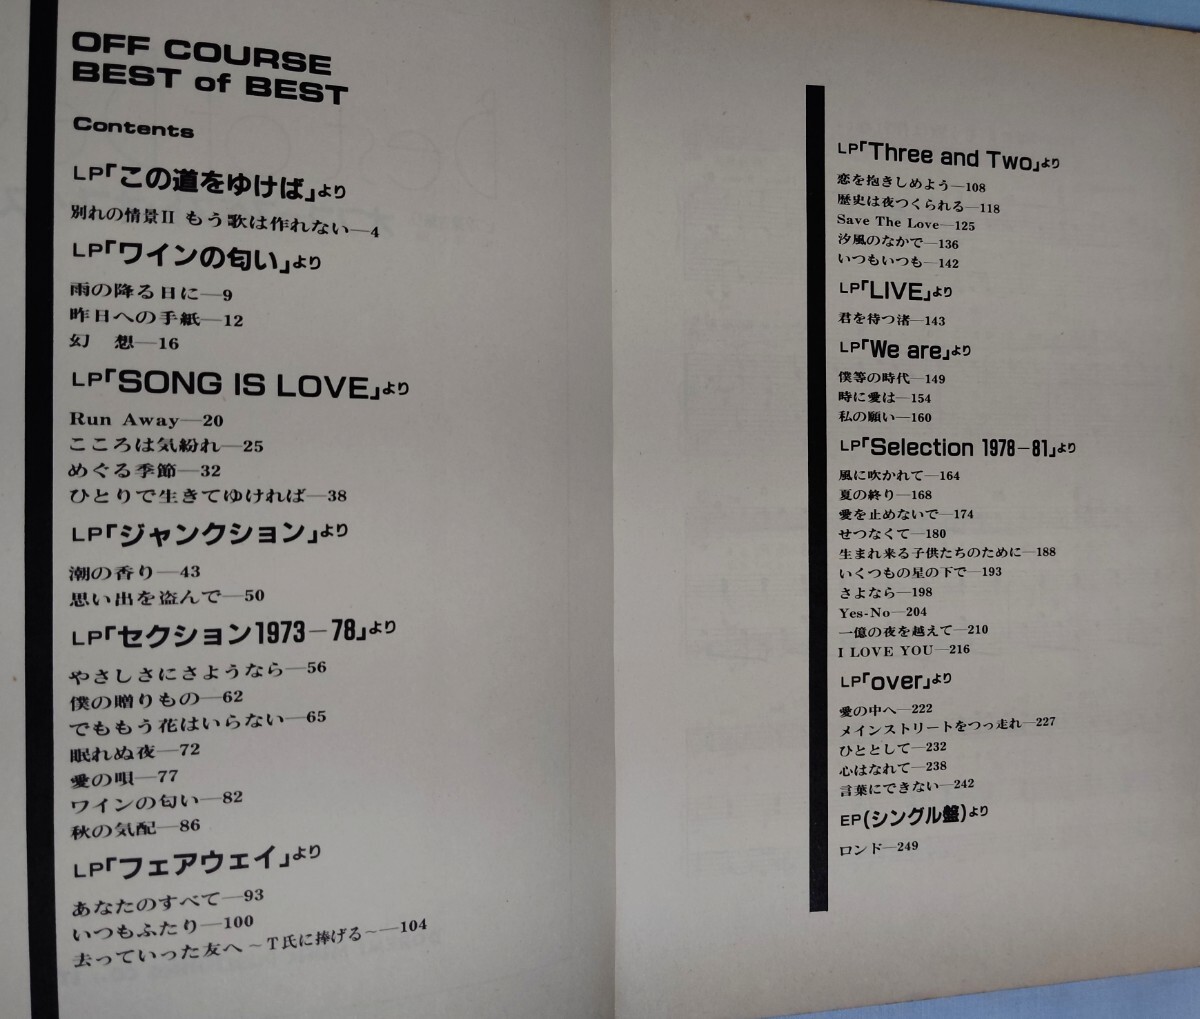 OFF COURSE
BEST of BEST
Contents
LP「この道をゆけば」より
別れの情景II もう歌は作れない—4
LP「ワインの匂い」より
雨の降る日に—9
昨日への手紙—12
幻 想—16
LP「SONG IS LOVE」より
Run Away—20
こころは気紛れ—25
めぐる季節—32
ひとりで生きてゆければ—38
LP「ジャンクション」より
潮の香り—43
思い出を盗んで—50
LP「セクション1973－78」より
やさしさにさようなら—56
僕の贈りもの—62
でももう花はいらない—65
眠れぬ夜—72
愛の唄—77
ワインの匂い—82
秋の気配—86
LP「フェアウェイ」より
あなたのすべて—93
いつもふたり—100
去っていった友へ～T氏に捧げる～—104
LP「Three and Two」より
恋を抱きしめよう—108
歴史は夜つくられる—118
Save The Love—125
汐風のなかで—136
いつもいつも—142
LP「LIVE」より
君を待つ渚—143
LP「We are」より
僕等の時代—149
時に愛は—154
私の願い—160
LP「Selection 1978－81」より
風に吹かれて—164
夏の終り—168
愛を止めないで—174
せつなくて—180
生まれ来る子供たちのために—188
いくつもの星の下で—193
さよなら—198
Yes-No—204
一億の夜を越えて—210
I LOVE YOU—216
LP「over」より
愛の中へ—222
メインストリートをつっ走れ—227
ひととして—232
心はなれて—238
言葉にできない—242
EP(シングル盤)より
ロンド—249